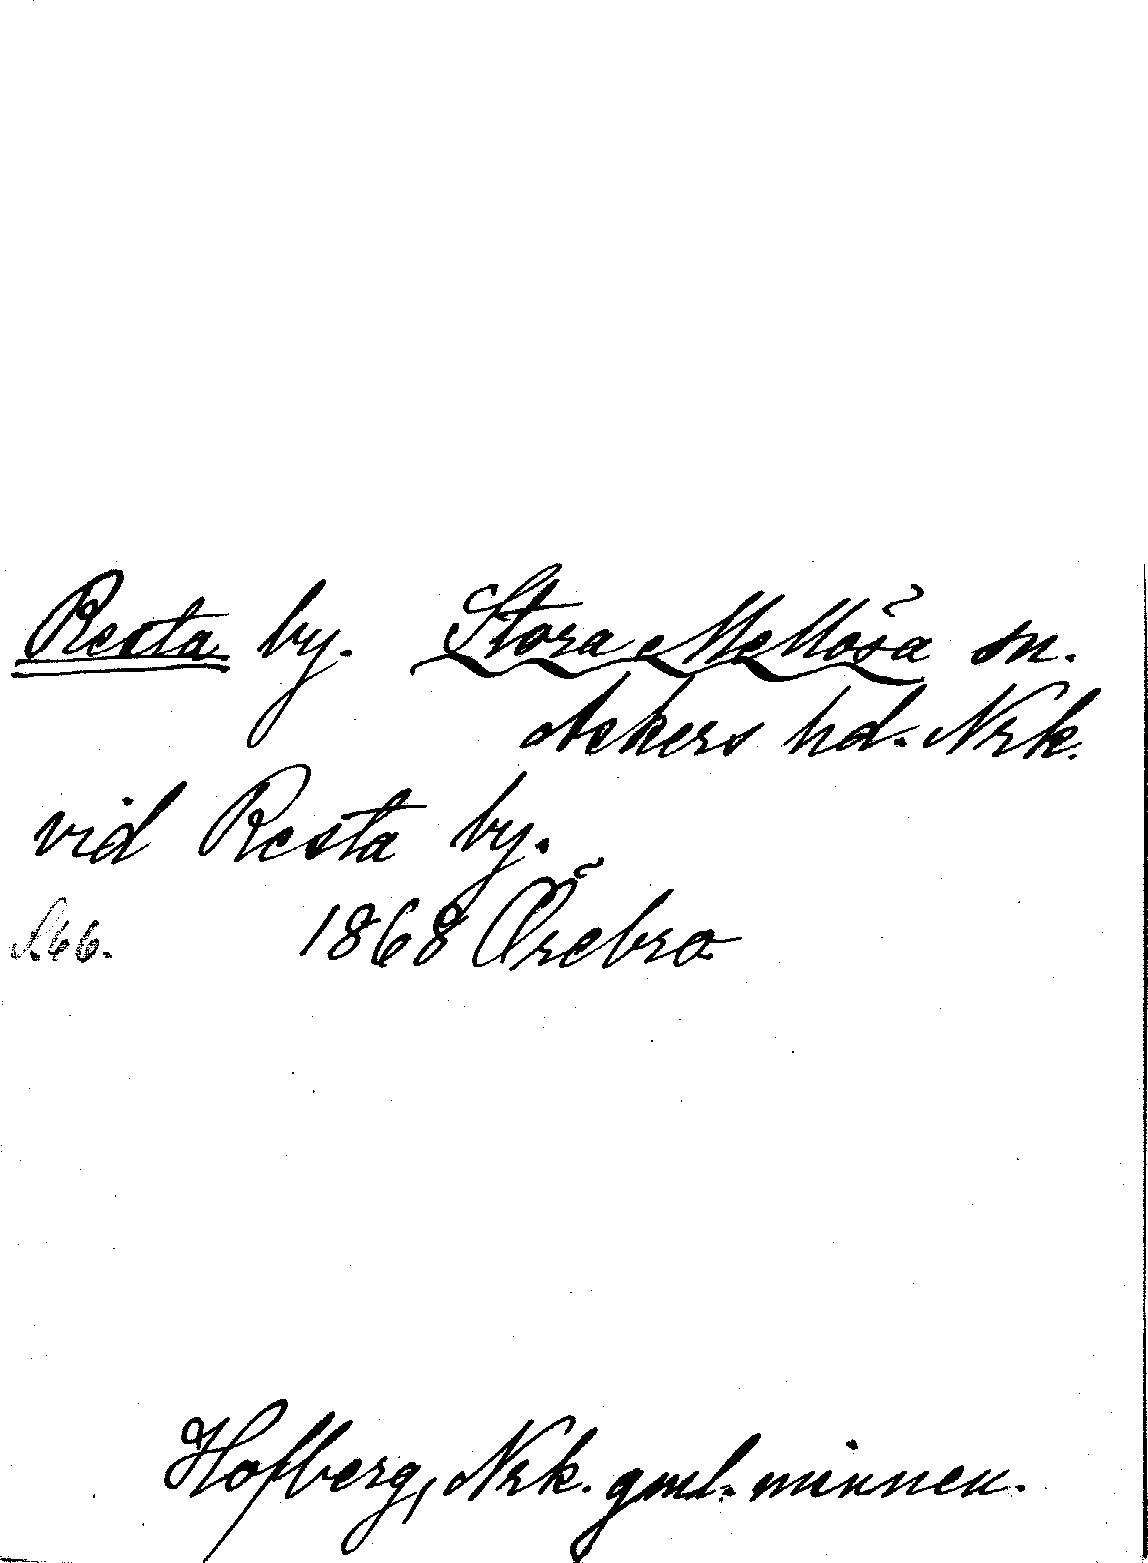 Resta by. Stora Mellösa sn.
Askers hd. Nrk.
vid Resta by.
S. 66. 1868 Örebro
Hofberg, Nrk. gml. minnen.